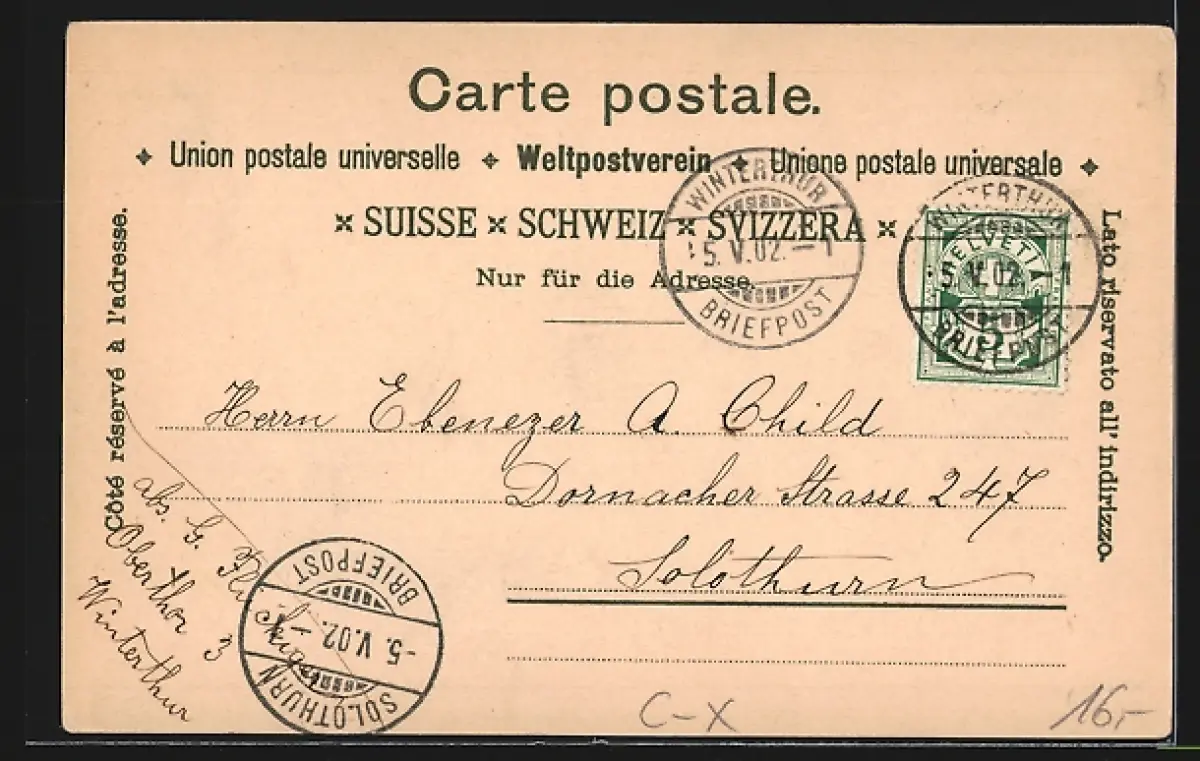 Carte postale.
Union postale universelle Weltpostverein Unione postale universale
SUISSE SCHWEIZ SVIZZERA
Nur für die Adresse.
Côté réservé à l'adresse.
Lato riservato all' indirizzo.
WINTERTHUR
5. V. 02. – 1
BRIEFPOST
WINTERTHUR
5. V. 02. – 1
BRIEFPOST
HELVETIA
5
Herrn Ebenezer A. Child
Dornacher Strasse 247
Solothurn
abs. G.
Oberthor 3
Winterthur
BRIEFPOST
-5. V. 02.-
SOLOTHURN
C-X
16,-